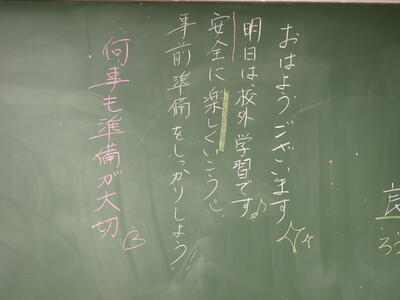 おはようございます
明日は、校外学習です♪
安全に楽しくいこうじ
事前準備をしっかりしよう!!
何事も準備が大切